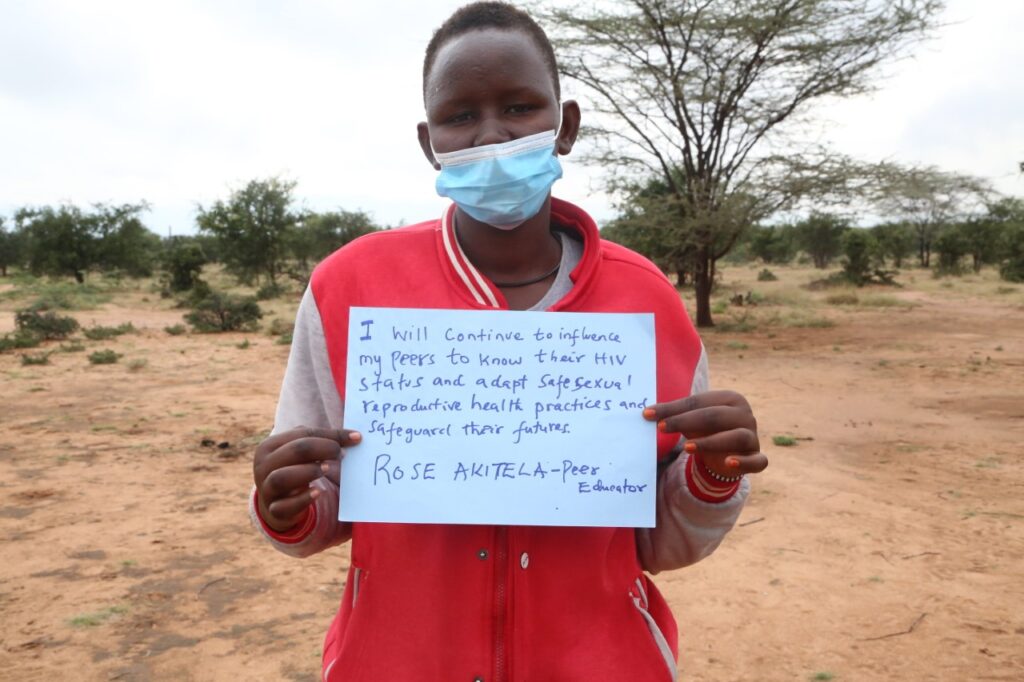 I will continue to influence
my peers to know their HIV
status and adapt safe sexual
reproductive health practices and
safeguard their futures.
ROSE AKITELA - Peer
Educator